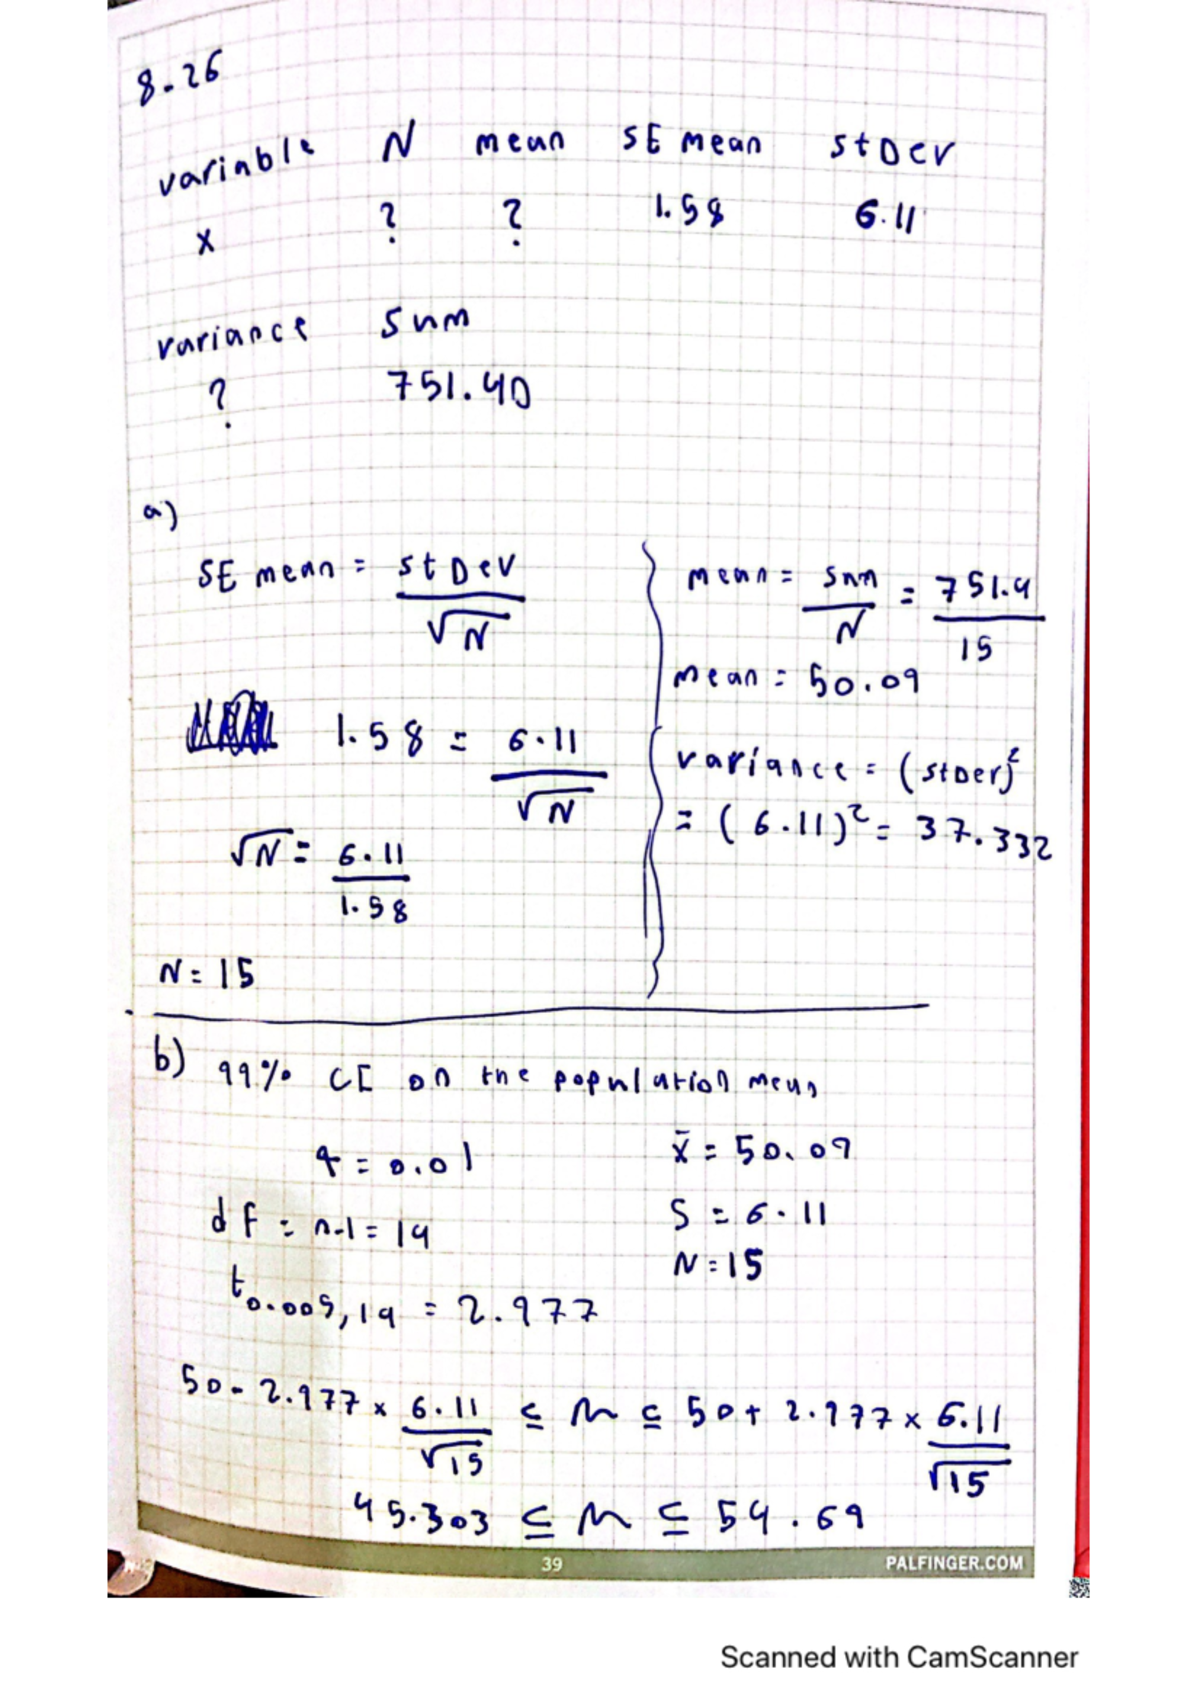 8-26
variable N mean SE mean StDev
x ? ? 1.58 6.11
variance Sum
? 751.40
a)
SE mean = StDev / √N
1.58 = 6.11 / √N
√N = 6.11 / 1.58
N = 15
mean = Sum / N = 751.4 / 15
mean = 50.09
variance = (StDev)²
= (6.11)² = 37.332
b) 99% CI on the population mean
α = 0.01
df = n-1 = 14
t0.005,14 = 2.977
x̄ = 50.09
S = 6.11
N = 15
50 - 2.977 × 6.11 / √15 ≤ M ≤ 50 + 2.977 × 6.11 / √15
45.303 ≤ M ≤ 54.69
39 PALFINGER.COM
Scanned with CamScanner